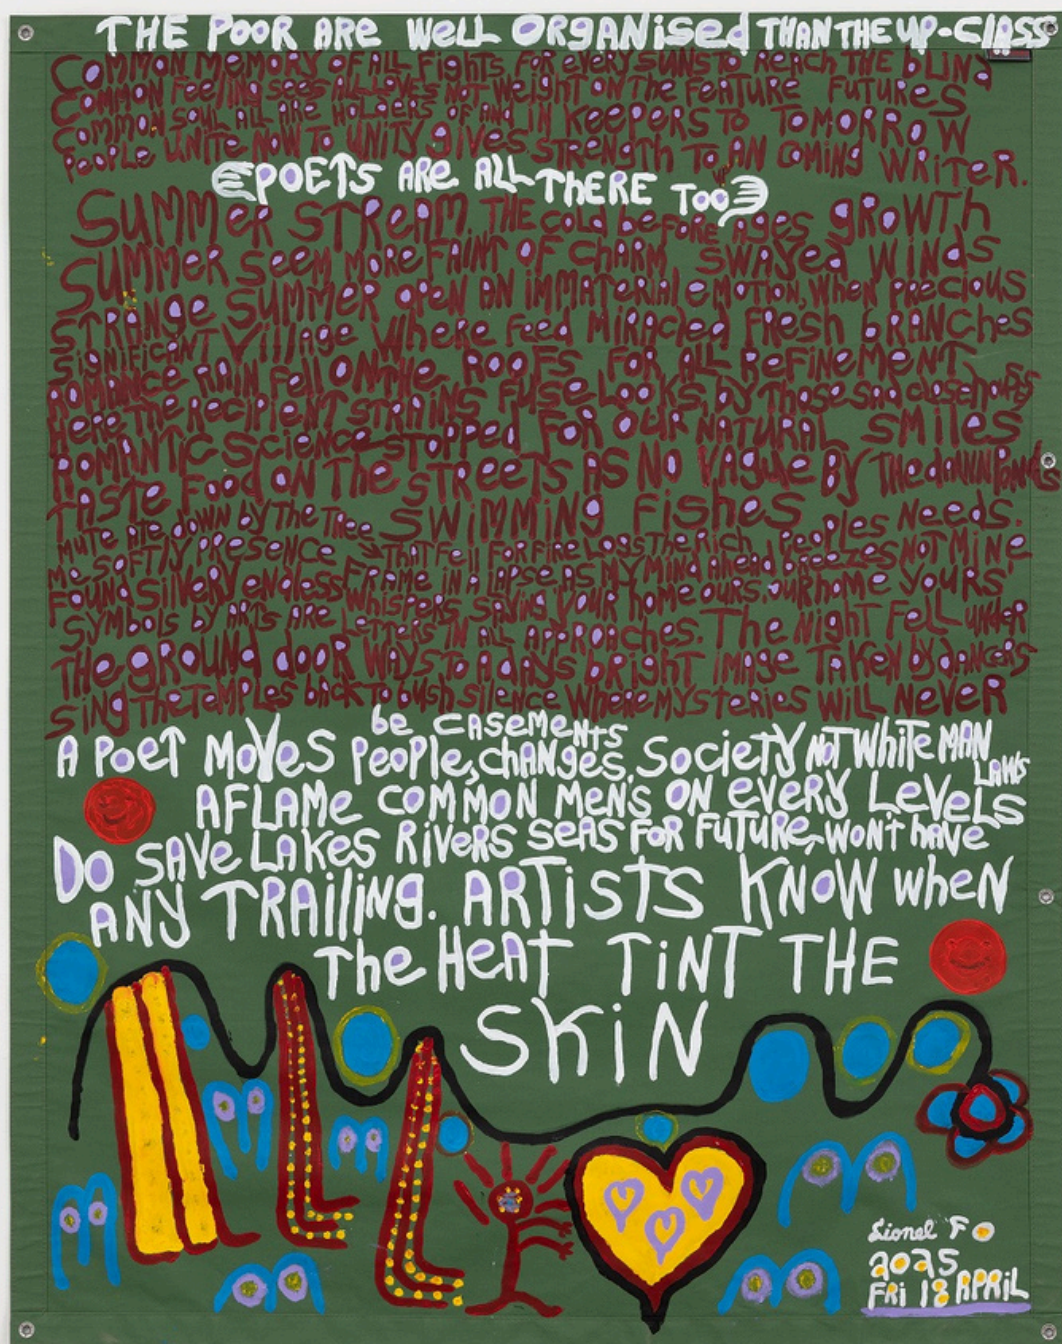 THE POOR ARE WELL ORGANISed THAN THE UP-CLASS
COMMON MEMORY OF ALL FIGHTS FOR EVERY SUNS TO REACH THE BLIND
COMMON FEELING SEES ALL LOVES NOT WEIGHT ON THE FEATURE FUTURES
COMMON SOUL ALL ARE HOLDERS OF AND IN KEEPERS TO TOMORROW
PEOPLE UNITE NOW TO UNITY GIVES STRENGTH TO AN COMING WRITER.
POETS ARE ALL THERE TOO
SUMMER STREAM THE COLD BEFORE AGES GROWTH
SUMMER SEEM MORE FAINT OF CHARM SWAYED WINDS
STRANGE SUMMER OPEN AN IMMATERIAL EMOTION, WHEN PRECIOUS
SIGNIFICANT VILLAGE WHERE FEED MIRACLED FRESH BRANCHES
ROMANCE RAIN FELL ON THE ROOFS FOR ALL REFINEMENT
HERE THE RECIPIENT STRAINS FUSE LOOKS by Those
ROMANTIC SCIENCE STOPPED FOR OUR NATURAL SMILES
TASTE FOOD ON THE STREETS AS NO VAGUE BY THE dAWN
MUTE ATE DOWN BY THE TREE SWIMMING FISHES PEOPLES NEEDS.
ME SOFTLY PRESENCE THAT FELL FOR FIRE LOGS THE RICH AHEAD BREEZES NOT MINE
FOUND SILVERY ENDLESS FRAME IN A LAPSE AS MY MIND
SYMBOLS BY ARTS ARE WHISPERS SAYING YOUR HOME OURS OUR HOME YOURS
LETTERS IN ALL APPROACHES. The NIGHT FELL UNDER
THE GROUND dOOR WAYS TO A DAYS bRIGHT IMAGE TAKEN by dANCERS
SING THE TEMPLES bACK TO bUSh SILENCE WHERE MYSTERIES WILL NEVER
be CASEMENTS
A POET MOVES PEOPLE, CHANGES. SOCIETY NOT WhiTE MAN
LAWS
AFLAME COMMON MEN'S ON EVERY LEVELS
DO SAVE LAKES RIVERS SEAS FOR FUTURE, WON'T hAVE
ANY TRAILING. ARTISTS KNOW WHEN
The HEAT TINT THE
SKIN
Lionel FO
2025
FRI 18 APRIL